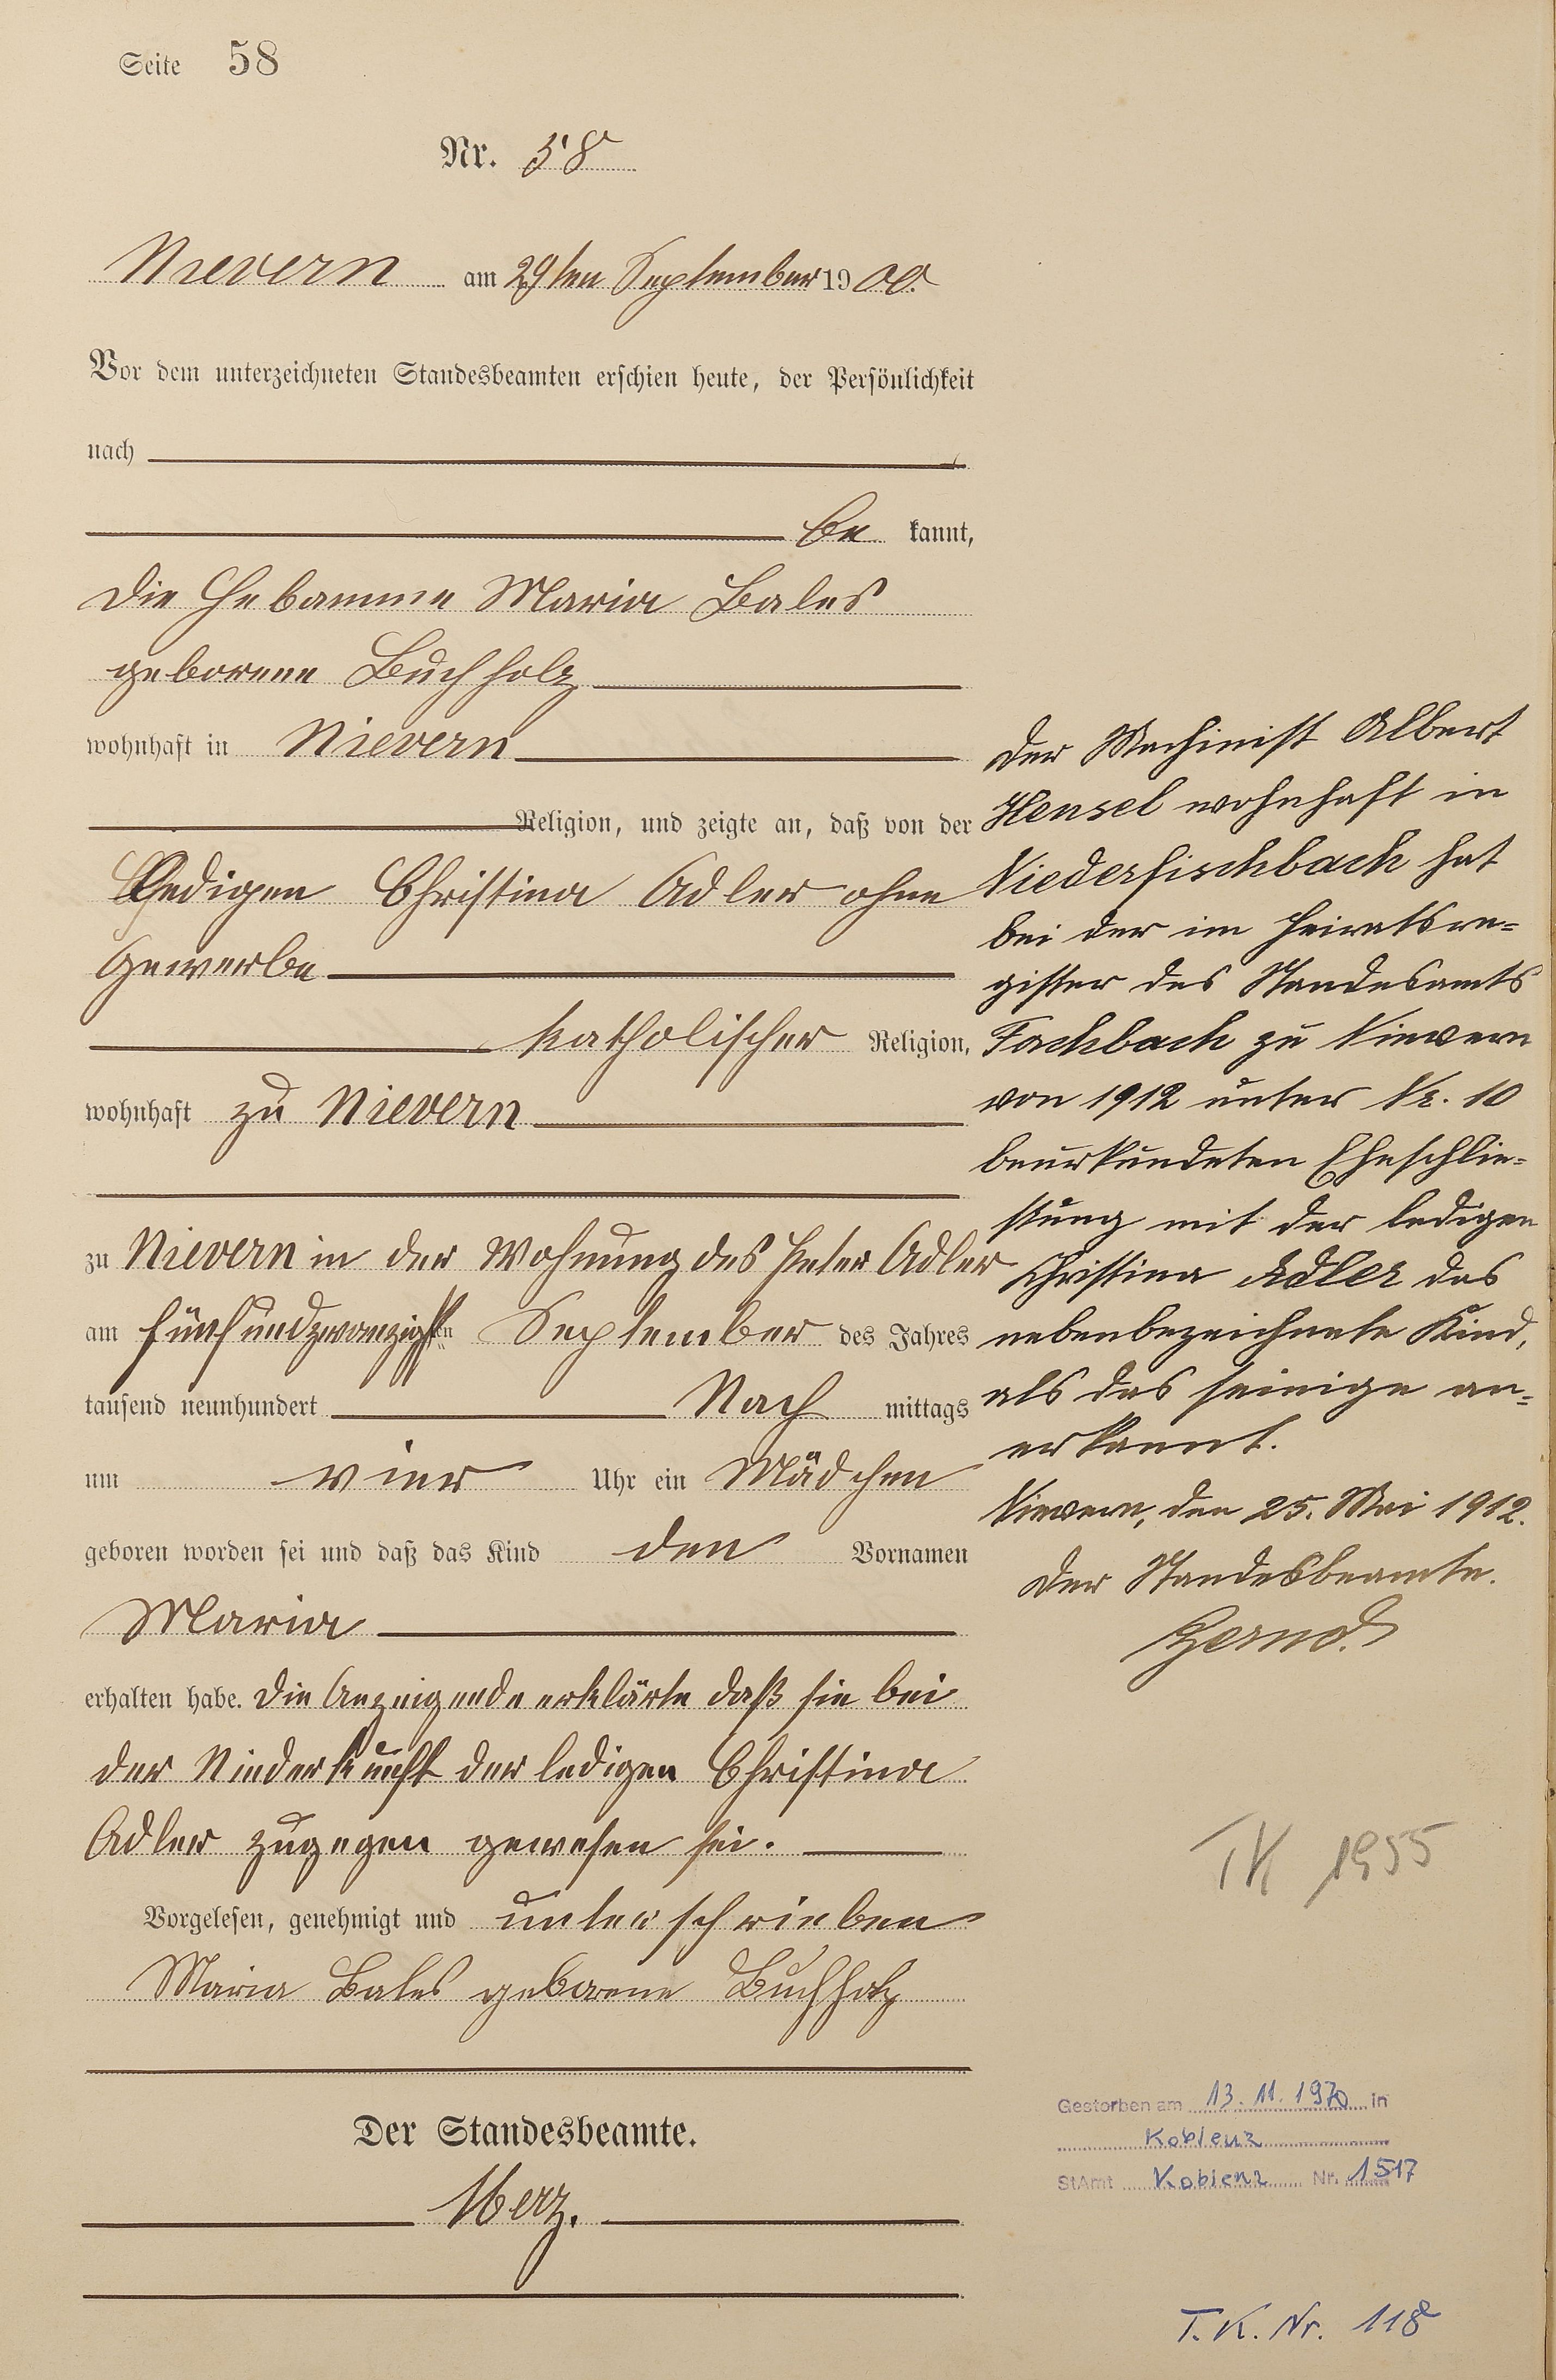 Seite 58
Nr. 58
Nievern am 29ten September 1900.
Vor dem unterzeichneten Standesbeamten erschien heute, der Persönlichkeit
nach
be kannt,
die Hebamme Maria Bales
geborene Buchholz
wohnhaft in Nievern
Religion, und zeigte an, daß von der
Ledigen Christina Adler ohne
Gewerbe
katholischer Religion,
wohnhaft zu Nievern
zu Nievern in der Wohnung des Peter Adler
am fünfundzwanzigsten September des Jahres
tausend neunhundert Nach mittags
um vier Uhr ein Mädchen
geboren worden sei und daß das Kind den Vornamen
Maria
erhalten habe. Die Anzeigende erklärte daß sie bei
der Niederkunft der ledigen Christina
Adler zugegen gewesen sei.
Vorgelesen, genehmigt und unterschrieben
Maria Bales geborene Buchholz
Der Standesbeamte.
Der Machinist Albert
Hensel wohnhaft in
Niederfischbach hat
bei der im Heiratsre-
gister des Standesamts
Fachbach zu Nievern
von 1912 unter Nr. 10
beurkundeten Eheschlie-
ßung mit der ledigen
Christina Adler das
nebenbezeichnete Kind,
als das seinige an-
erkannt.
Nievern, den 25. Mai 1912.
Der Standesbeamte.
TK 1955
Gestorben am 13.11.1970 in
Koblenz
StAmt Koblenz Nr. 1517
T.K. Nr. 118